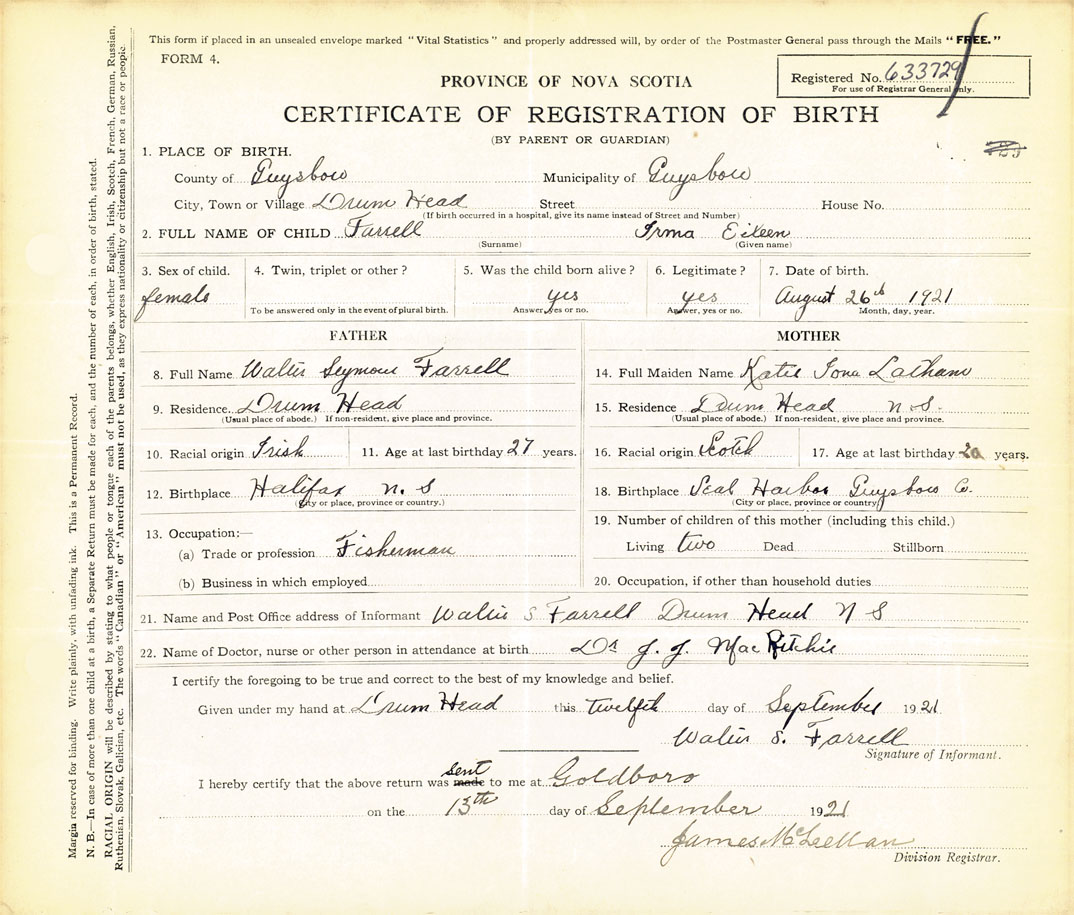 This form if placed in an unsealed envelope marked "Vital Statistics" and properly addressed will, by order of the Postmaster General pass through the Mails "FREE."
FORM 4.
Registered No. 633729
For use of Registrar General only.
PROVINCE OF NOVA SCOTIA
CERTIFICATE OF REGISTRATION OF BIRTH
(BY PARENT OR GUARDIAN)
1. PLACE OF BIRTH.
County of Guysboro Municipality of Guysboro
City, Town or Village Drum Head Street House No.
(If birth occurred in a hospital, give its name instead of Street and Number)
2. FULL NAME OF CHILD Farrell Irma Eileen
(Surname) (Given name)
3. Sex of child. 4. Twin, triplet or other? 5. Was the child born alive? 6. Legitimate? 7. Date of birth.
female yes yes August 26th 1921
To be answered only in the event of plural birth. Answer, yes or no. Answer, yes or no. Month, day, year.
FATHER
8. Full Name Walter Seymour Farrell
9. Residence Drum Head
(Usual place of abode.) If non-resident, give place and province.
10. Racial origin Irish 11. Age at last birthday 27 years.
12. Birthplace Halifax N. S
(City or place, province or country.)
13. Occupation:—
(a) Trade or profession Fisherman
(b) Business in which employed
MOTHER
14. Full Maiden Name Katie Iona Latham
15. Residence Drum Head N.S.
(Usual place of abode.) If non-resident, give place and province.
16. Racial origin Scotch 17. Age at last birthday years.
18. Birthplace Seal Harbor Guysboro Co.
(City or place, province or country)
19. Number of children of this mother (including this child.)
Living two Dead Stillborn
20. Occupation, if other than household duties
21. Name and Post Office address of Informant Walter S Farrell Drum Head N S
22. Name of Doctor, nurse or other person in attendance at birth Dr J. J. MacRitchie
I certify the foregoing to be true and correct to the best of my knowledge and belief.
Given under my hand at Drum Head this twelfth day of September 1921
Walter S. Farrell
Signature of Informant.
sent
I hereby certify that the above return was made to me at Goldboro
on the 13th day of September 1921
James McLellan
Division Registrar.
Margin reserved for binding. Write plainly, with unfading ink. This is a Permanent Record.
N. B.—In case of more than one child at a birth, a Separate Return must be made for each, and the number of each, in order of birth, stated.
RACIAL ORIGIN will be described by stating to what people or tongue each of the parents belongs, whether English, Irish, Scotch, French, German, Russian,
Ruthenian, Slovak, Galician, etc. The words "Canadian" or "American" must not be used, as they express nationality or citizenship but not a race or people